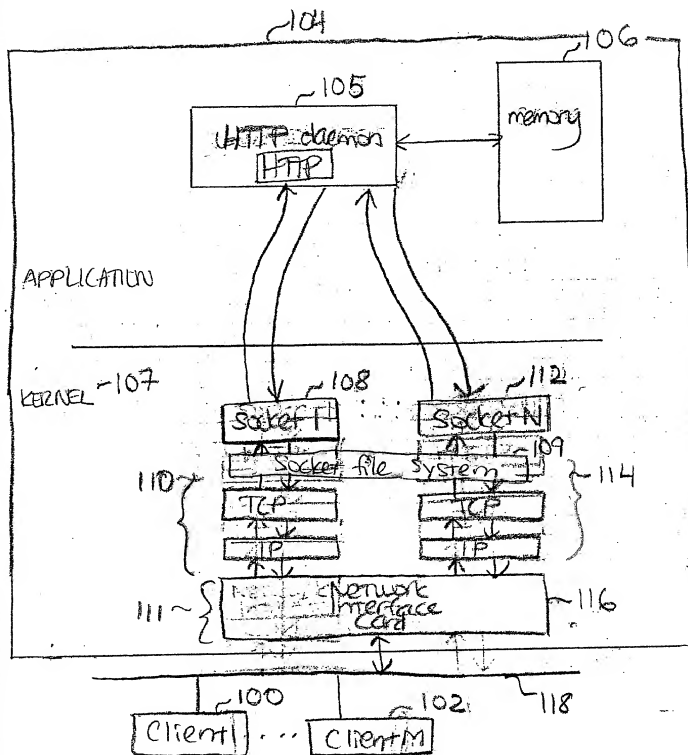 104
106
105
memory
HTTP daemon
HTTP
APPLICATION
KERNEL 107
108
112
Socket 1
Socket N
109
Socket file system
110
114
TCP
TCP
IP
IP
111
Network
Interface
Card
116
118
100
102
Client 1
...
Client M